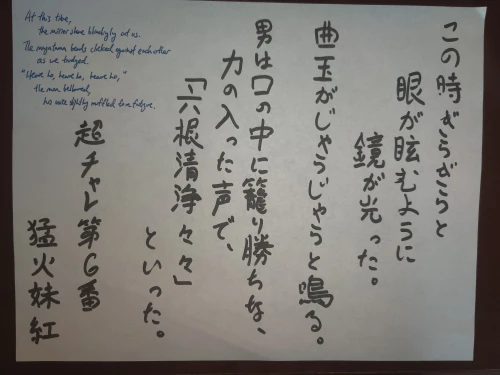 At this time,
the mirror shone blindingly at us.
The magatama beads clacked against each other
as we trudged.
"Heave ho, heave ho, heave ho,"
the man bellowed,
his voice slightly muffled fatigue.
この時ぎらぎらと
眼が眩むように
鏡が光った。
曲玉がじゃらじゃらと鳴る。
男は口の中に籠り勝ちな、
力の入った声で、
「六根清浄々々」
といった。
超チャレ第6番
猛火妹紅